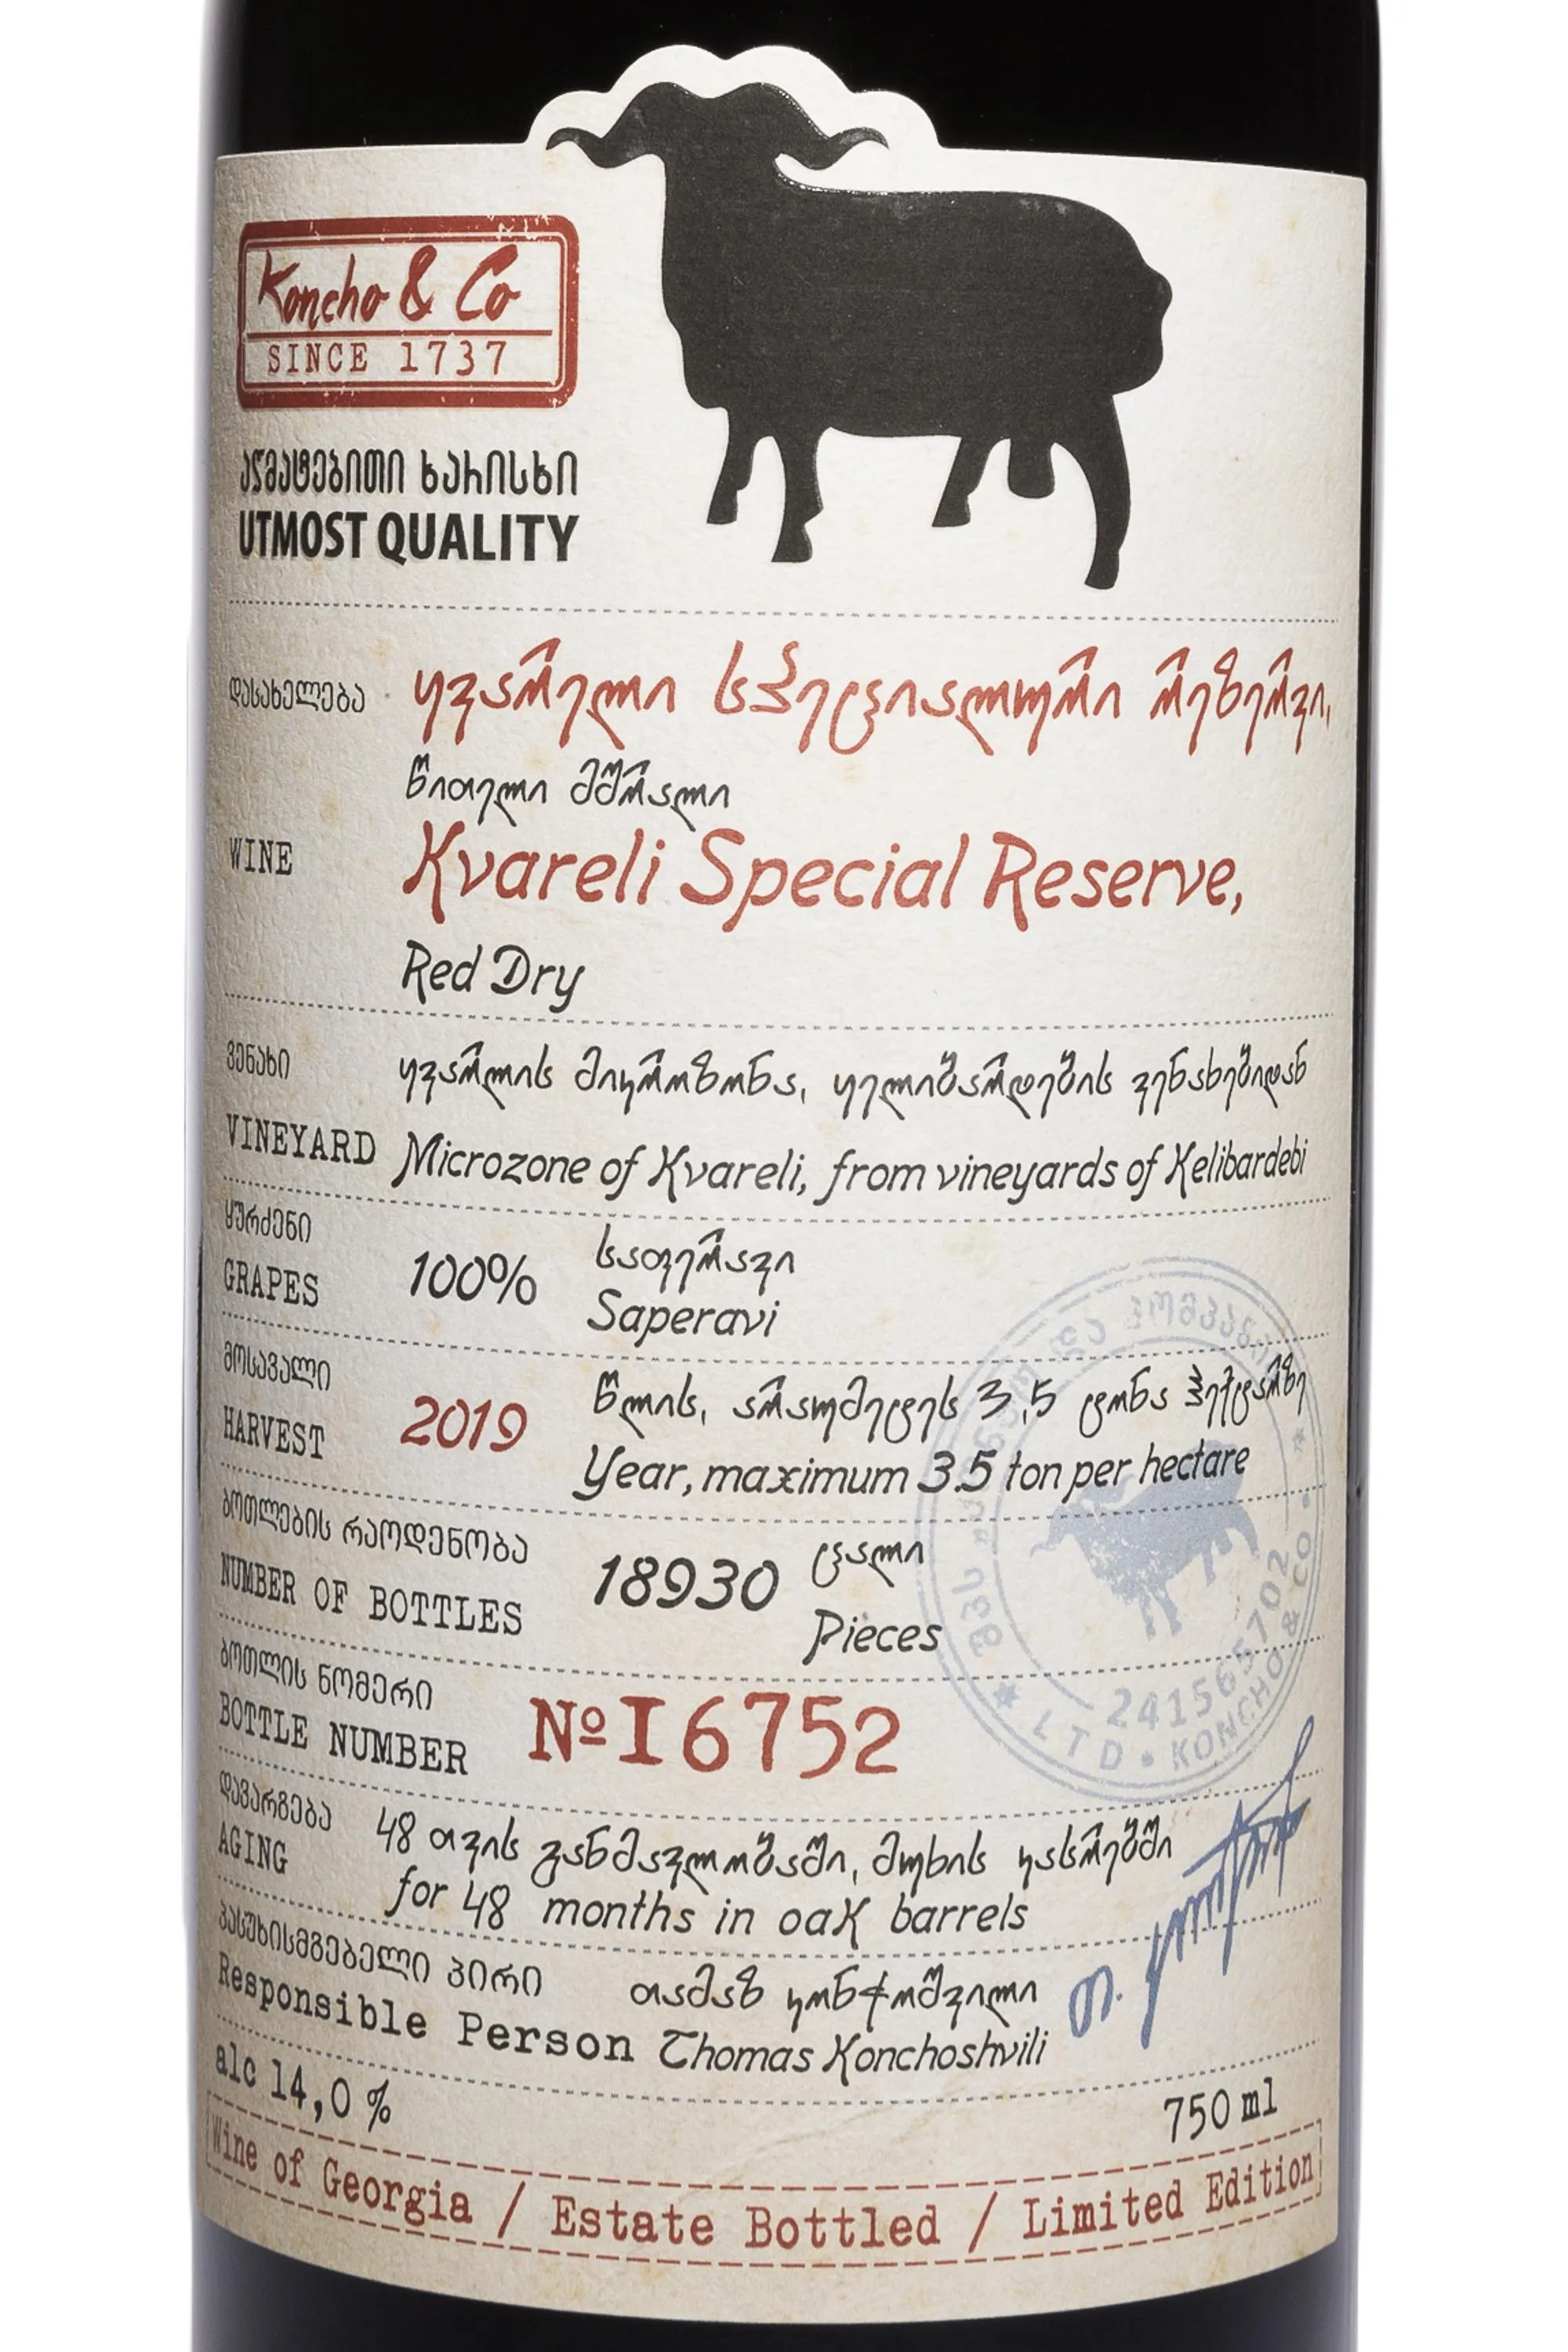 Koncho & Co
SINCE 1737
აღმატებითი ხარისხი
UTMOST QUALITY
დასახელება
ყვარელი სპეციალური რეზერვი,
წითელი მშრალი
WINE
Kvareli Special Reserve,
Red Dry
ვენახი
ყვარლის მიკროზონა, ყელიბარდების ვენახებიდან
VINEYARD
Microzone of Kvareli, from vineyards of Kelibardebi
ყურძენი
GRAPES
100%
საფერავი
Saperavi
მოსავალი
HARVEST
2019
წლის, არაუმეტეს 3,5 ტონა ჰექტარზე
Year, maximum 3.5 ton per hectare
ბოთლების რაოდენობა
NUMBER OF BOTTLES
18930
ცალი
Pieces
ბოთლის ნომერი
BOTTLE NUMBER
№16752
დავარგება
AGING
48 თვის განმავლობაში, მუხის კასრებში
for 48 months in oak barrels
პასუხისმგებელი პირი
თამაზ კონჭოშვილი
Responsible Person
Thomas Konchoshvili
და კომპანია
241565702
LTD • KONCHO & CO •
alc 14,0 %
750 ml
Wine of Georgia / Estate Bottled / Limited Edition